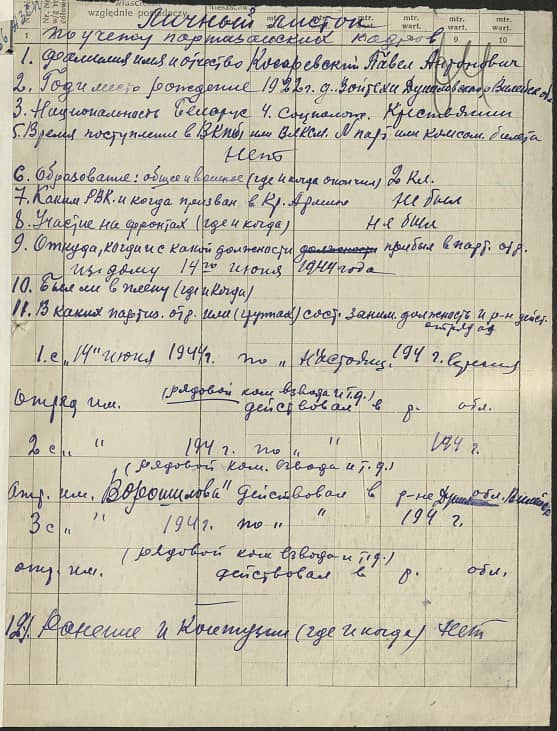 Личный листок
по учету партизанских кадров
1. Фамилия имя и отчество Косаревский Павел Антонович
2. Год и место рождение 1922 г. д. Зойтехи
3. Национальность Беларус 4. Соцполож. Крестьянин
5. Время поступление в ВКП(б) или ВЛКСМ. N парт или комсом. билета
Нет
6. Образование: общее и военное (где и когда окончил) 2 кл.
7. Каким РВК. и когда призван в Кр. Армию не был
8. Участие на фронтах (где и когда) не был
9. Откуда, когда и с какой должности должности прибыл в парт. отр.
из дому 14го июня 1944 года
10. Был ли в плену (где и когда)
11. В каких партиз. отр. или (группах) сост. заним. должность и р-н дейст.
отряда
1. с „14" июня 1944г. по „ Настоящ. 194 г. время
(рядовой ком. взвода и т.д.)
Отряд им. действовал в р. обл.
2 с „ " 194 г. по „ " 194 г.
(рядовой ком. взвода и т.д.)
отр. им. Ворошилова" действовал в р-не обл.
3 с „ " 194 г. по „ " 194 г.
(рядовой ком взвода и т.д.)
отр. им. действовал в р. обл.
12. Ранение и Контузии (где и когда) нет
względnie
mtr. wart.
mtr. wart.
mtr. wart. 9
mtr. wart. 10